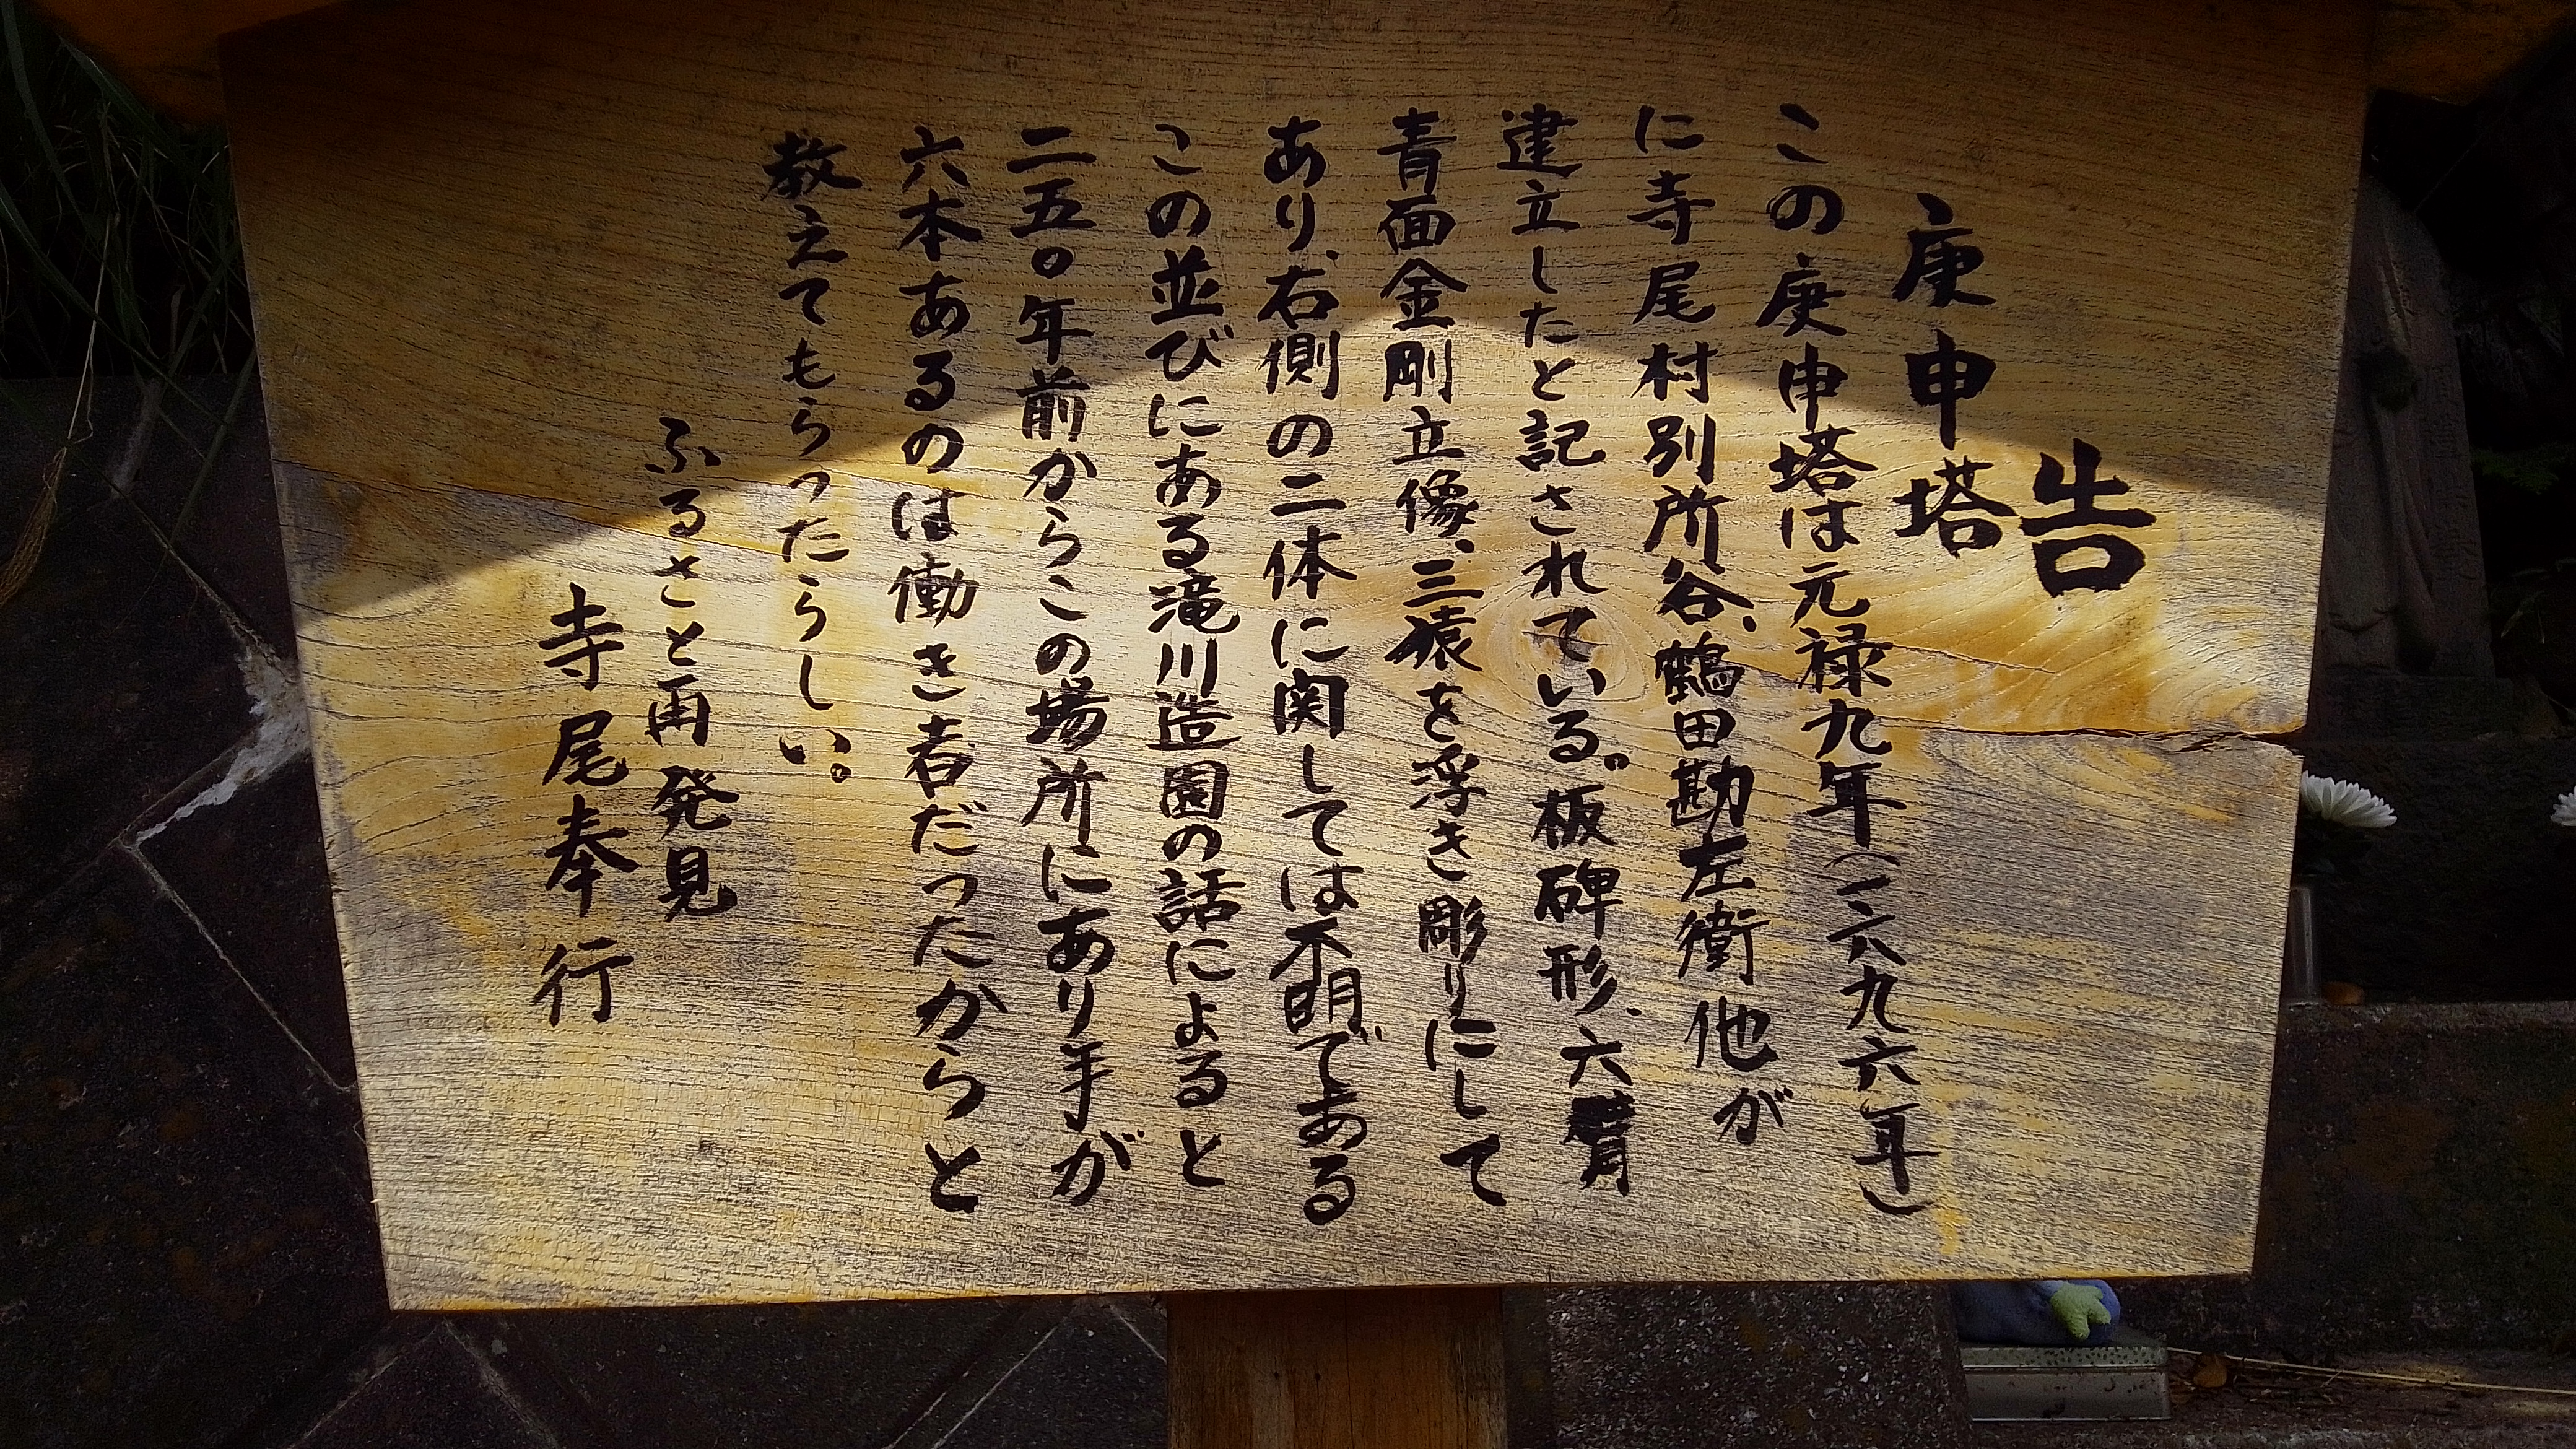 告
庚申塔
この庚申塔は元禄九年（一六九六年）
に寺尾村別所谷、鶴田勘左衛他が
建立したと記されている。板碑形、六臂
青面金剛立像、三猿を浮き彫りにして
あり、右側の二体に関しては不明である
この並びにある滝川造園の話によると
二五〇年前からこの場所にあり手が
六本あるのは働き者だったからと
教えてもらったらしい。
ふるさと再発見
寺尾奉行